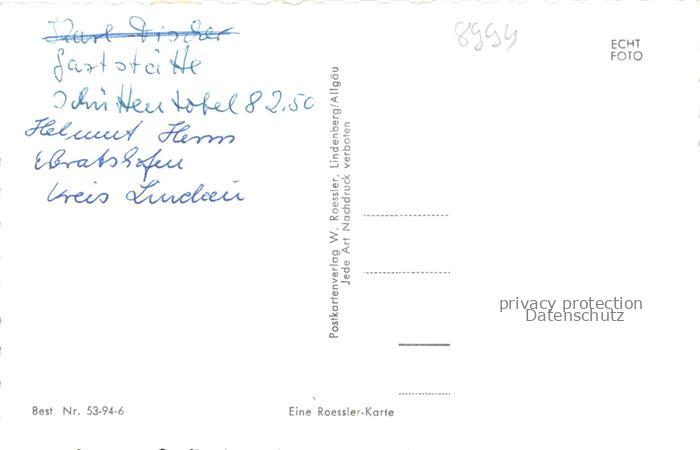 Karl Discher
Gaststätte
Schüttentobel 8 2.50
Helmut Herm
Ebratshofen
Kreis Lindau
8994
ECHT
FOTO
Postkartenverlag W. Roessler, Lindenberg/Allgäu
Jede Art Nachdruck verboten
privacy protection
Datenschutz
Best. Nr. 53-94-6
Eine Roessler-Karte